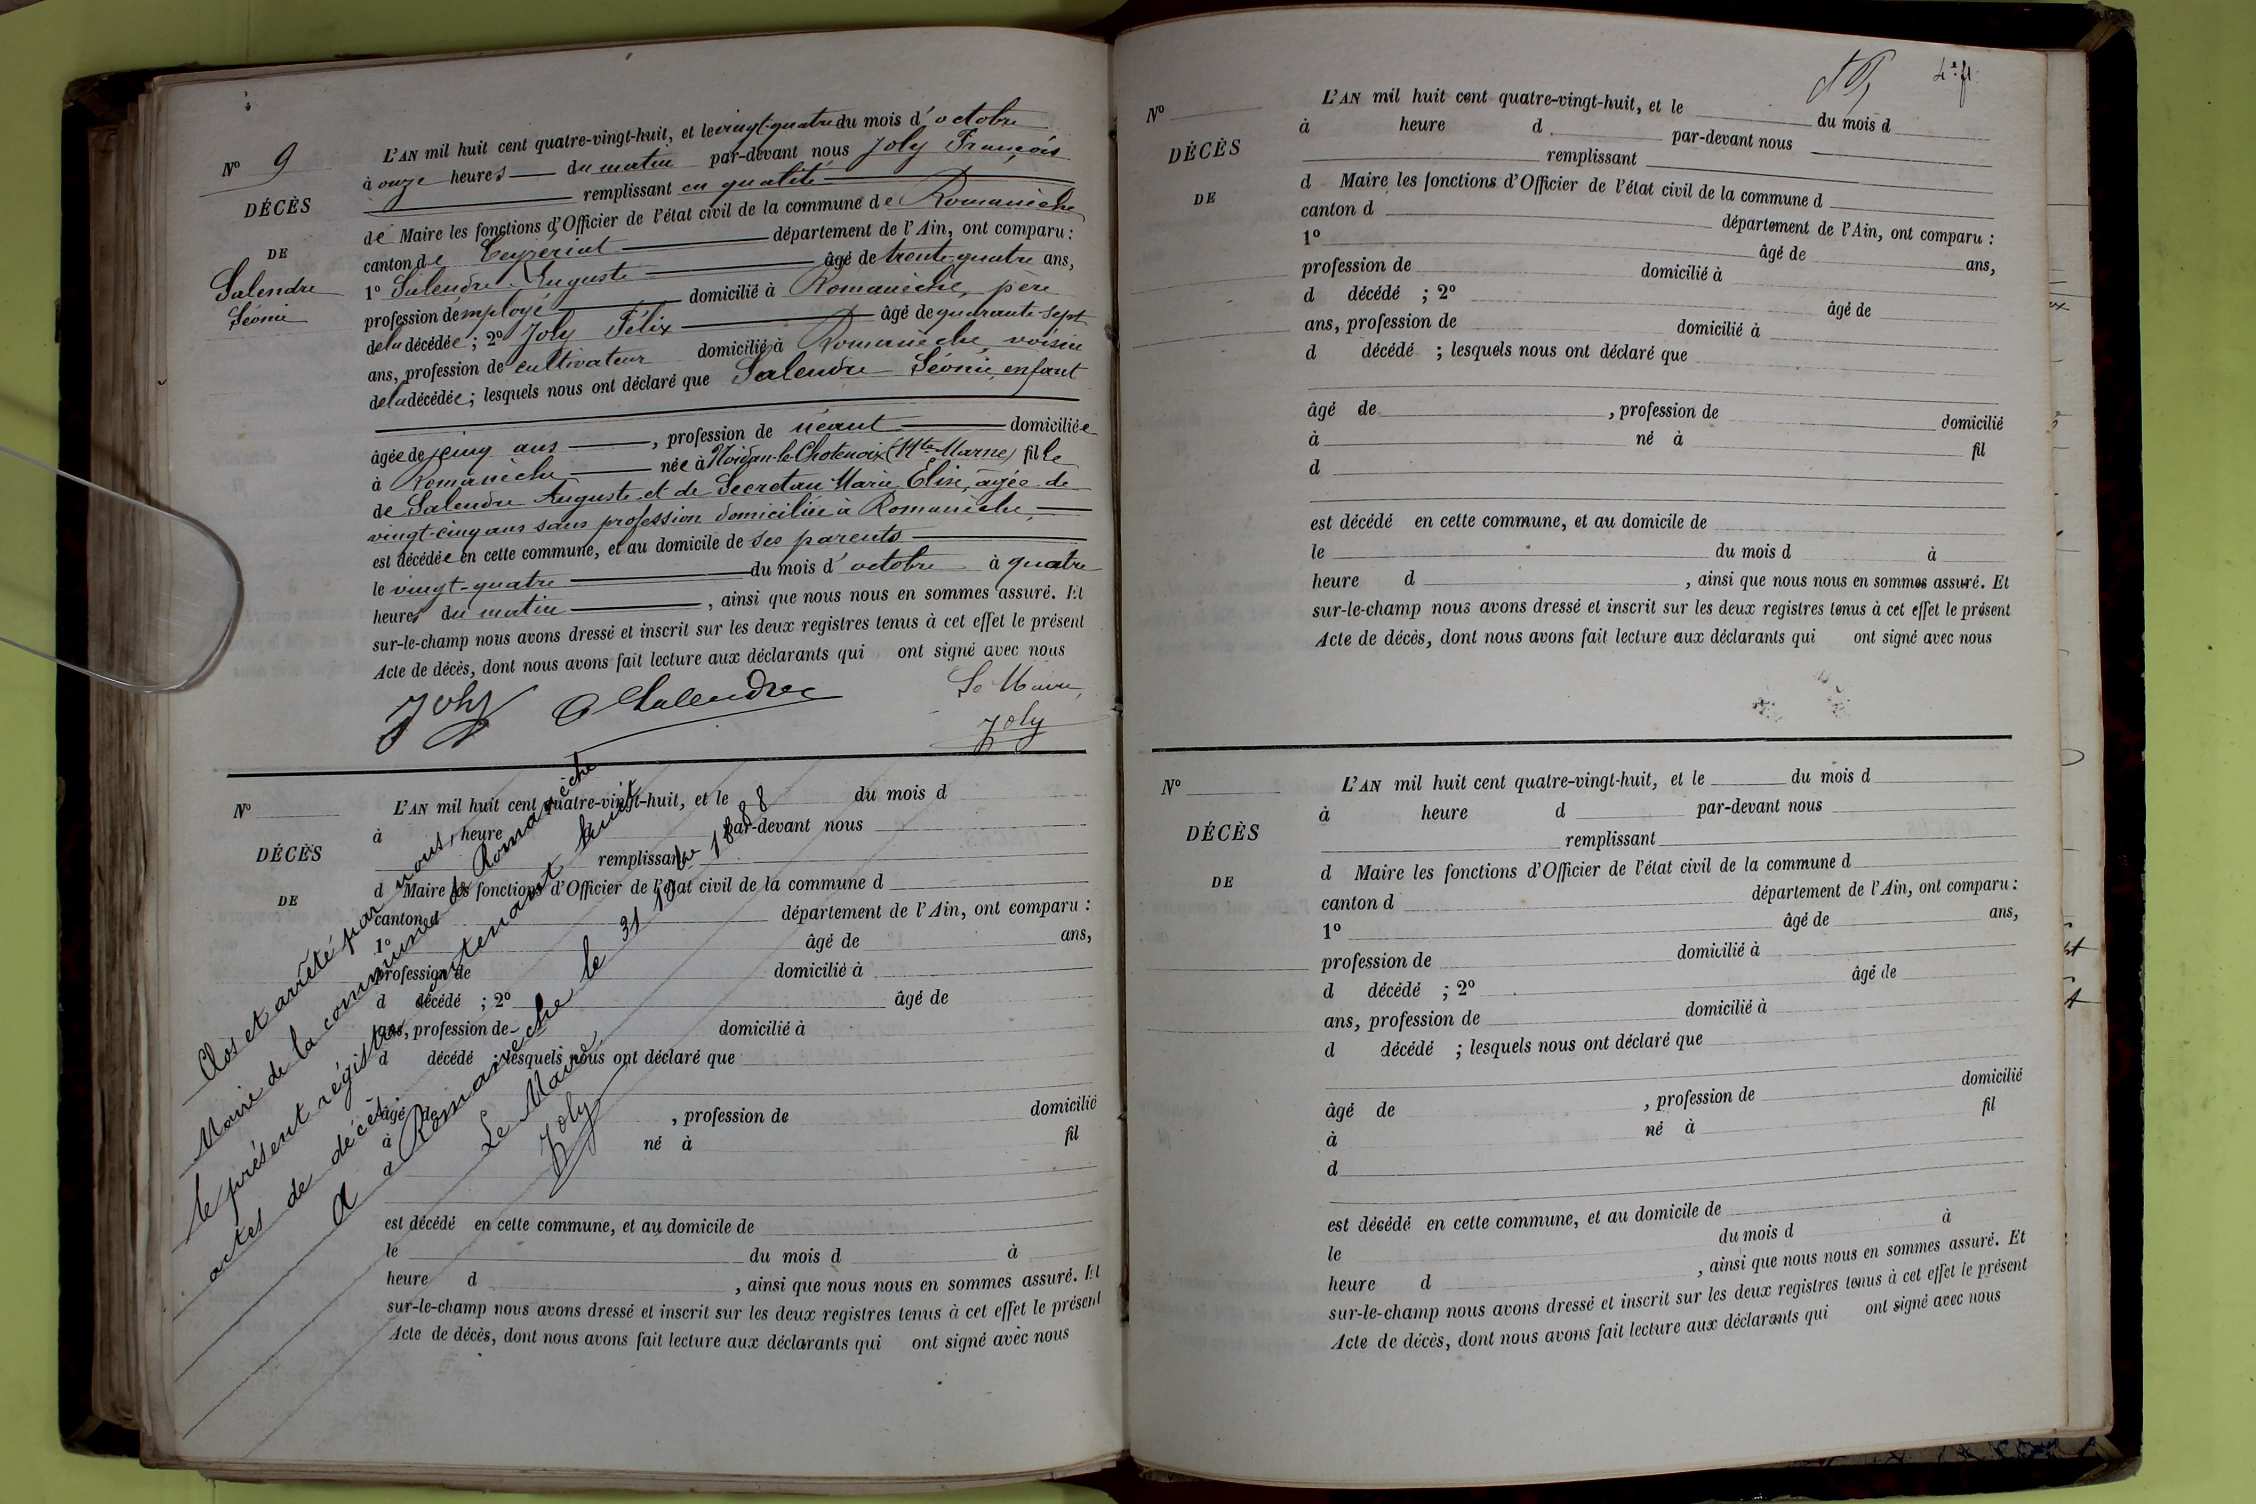 N° 9
DÉCÈS
DE
Salendre
Léonie
L'AN mil huit cent quatre-vingt-huit, et le vingt-quatre du mois d'octobre
à onze heures du matin par-devant nous Joly François
remplissant en qualité
de Maire les fonctions d'Officier de l'état civil de la commune de Romanèche
canton de Ceyzériat département de l'Ain, ont comparu :
1° Salendre Auguste âgé de trente-quatre ans,
profession d'employé domicilié à Romanèche, père
de la décédée ; 2° Joly Félix âgé de quarante-sept
ans, profession de cultivateur domicilié à Romanèche, voisin
de la décédée ; lesquels nous ont déclaré que Salendre Léonie, enfant
âgée de cinq ans , profession de néant domiciliée
à Romanèche née à Noidan-le-Chatenoix (Hte Marne) fille
de Salendre Auguste et de Secretan Marie Élise, âgée de
vingt-cinq ans sans profession domiciliée à Romanèche,
est décédée en cette commune, et au domicile de ses parents
le vingt-quatre du mois d'octobre à quatre
heures du matin , ainsi que nous nous en sommes assuré. Et
sur-le-champ nous avons dressé et inscrit sur les deux registres tenus à cet effet le présent
Acte de décès, dont nous avons fait lecture aux déclarants qui ont signé avec nous
Joly A Salendre Le Maire,
Joly
N°
DÉCÈS
DE
L'AN mil huit cent quatre-vingt-huit, et le du mois d
à heure par-devant nous
remplissant
d Maire les fonctions d'Officier de l'état civil de la commune d
canton d département de l'Ain, ont comparu :
1° âgé de ans,
profession de domicilié à
d décédé ; 2° âgé de
ans, profession de domicilié à
d décédé ; lesquels nous ont déclaré que
âgé de , profession de domicilié
à né à fil
d
est décédé en cette commune, et au domicile de
le du mois d à
heure d , ainsi que nous nous en sommes assuré. Et
sur-le-champ nous avons dressé et inscrit sur les deux registres tenus à cet effet le présent
Acte de décès, dont nous avons fait lecture aux déclarants qui ont signé avec nous
Clos et arrêté par nous,
Maire de la commune de Romanèche
le présent régistre contenant huit
actes de décès.
A Romanèche le 31 10bre 1888
Le Maire,
Joly
4e f.
N°
DÉCÈS
DE
L'AN mil huit cent quatre-vingt-huit, et le du mois d
à heure d par-devant nous
remplissant
d Maire les fonctions d'Officier de l'état civil de la commune d
canton d département de l'Ain, ont comparu :
1° âgé de ans,
profession de domicilié à
d décédé ; 2° âgé de
ans, profession de domicilié à
d décédé ; lesquels nous ont déclaré que
âgé de , profession de domicilié
à né à fil
d
est décédé en cette commune, et au domicile de
le du mois d à
heure d , ainsi que nous nous en sommes assuré. Et
sur-le-champ nous avons dressé et inscrit sur les deux registres tenus à cet effet le présent
Acte de décès, dont nous avons fait lecture aux déclarants qui ont signé avec nous
N°
DÉCÈS
DE
L'AN mil huit cent quatre-vingt-huit, et le du mois d
à heure d par-devant nous
remplissant
d Maire les fonctions d'Officier de l'état civil de la commune d
canton d département de l'Ain, ont comparu :
1° âgé de ans,
profession de domicilié à
d décédé ; 2° âgé de
ans, profession de domicilié à
d décédé ; lesquels nous ont déclaré que
âgé de , profession de domicilié
à né à fil
d
est décédé en cette commune, et au domicile de
le du mois d à
heure d , ainsi que nous nous en sommes assuré. Et
sur-le-champ nous avons dressé et inscrit sur les deux registres tenus à cet effet le présent
Acte de décès, dont nous avons fait lecture aux déclarants qui ont signé avec nous